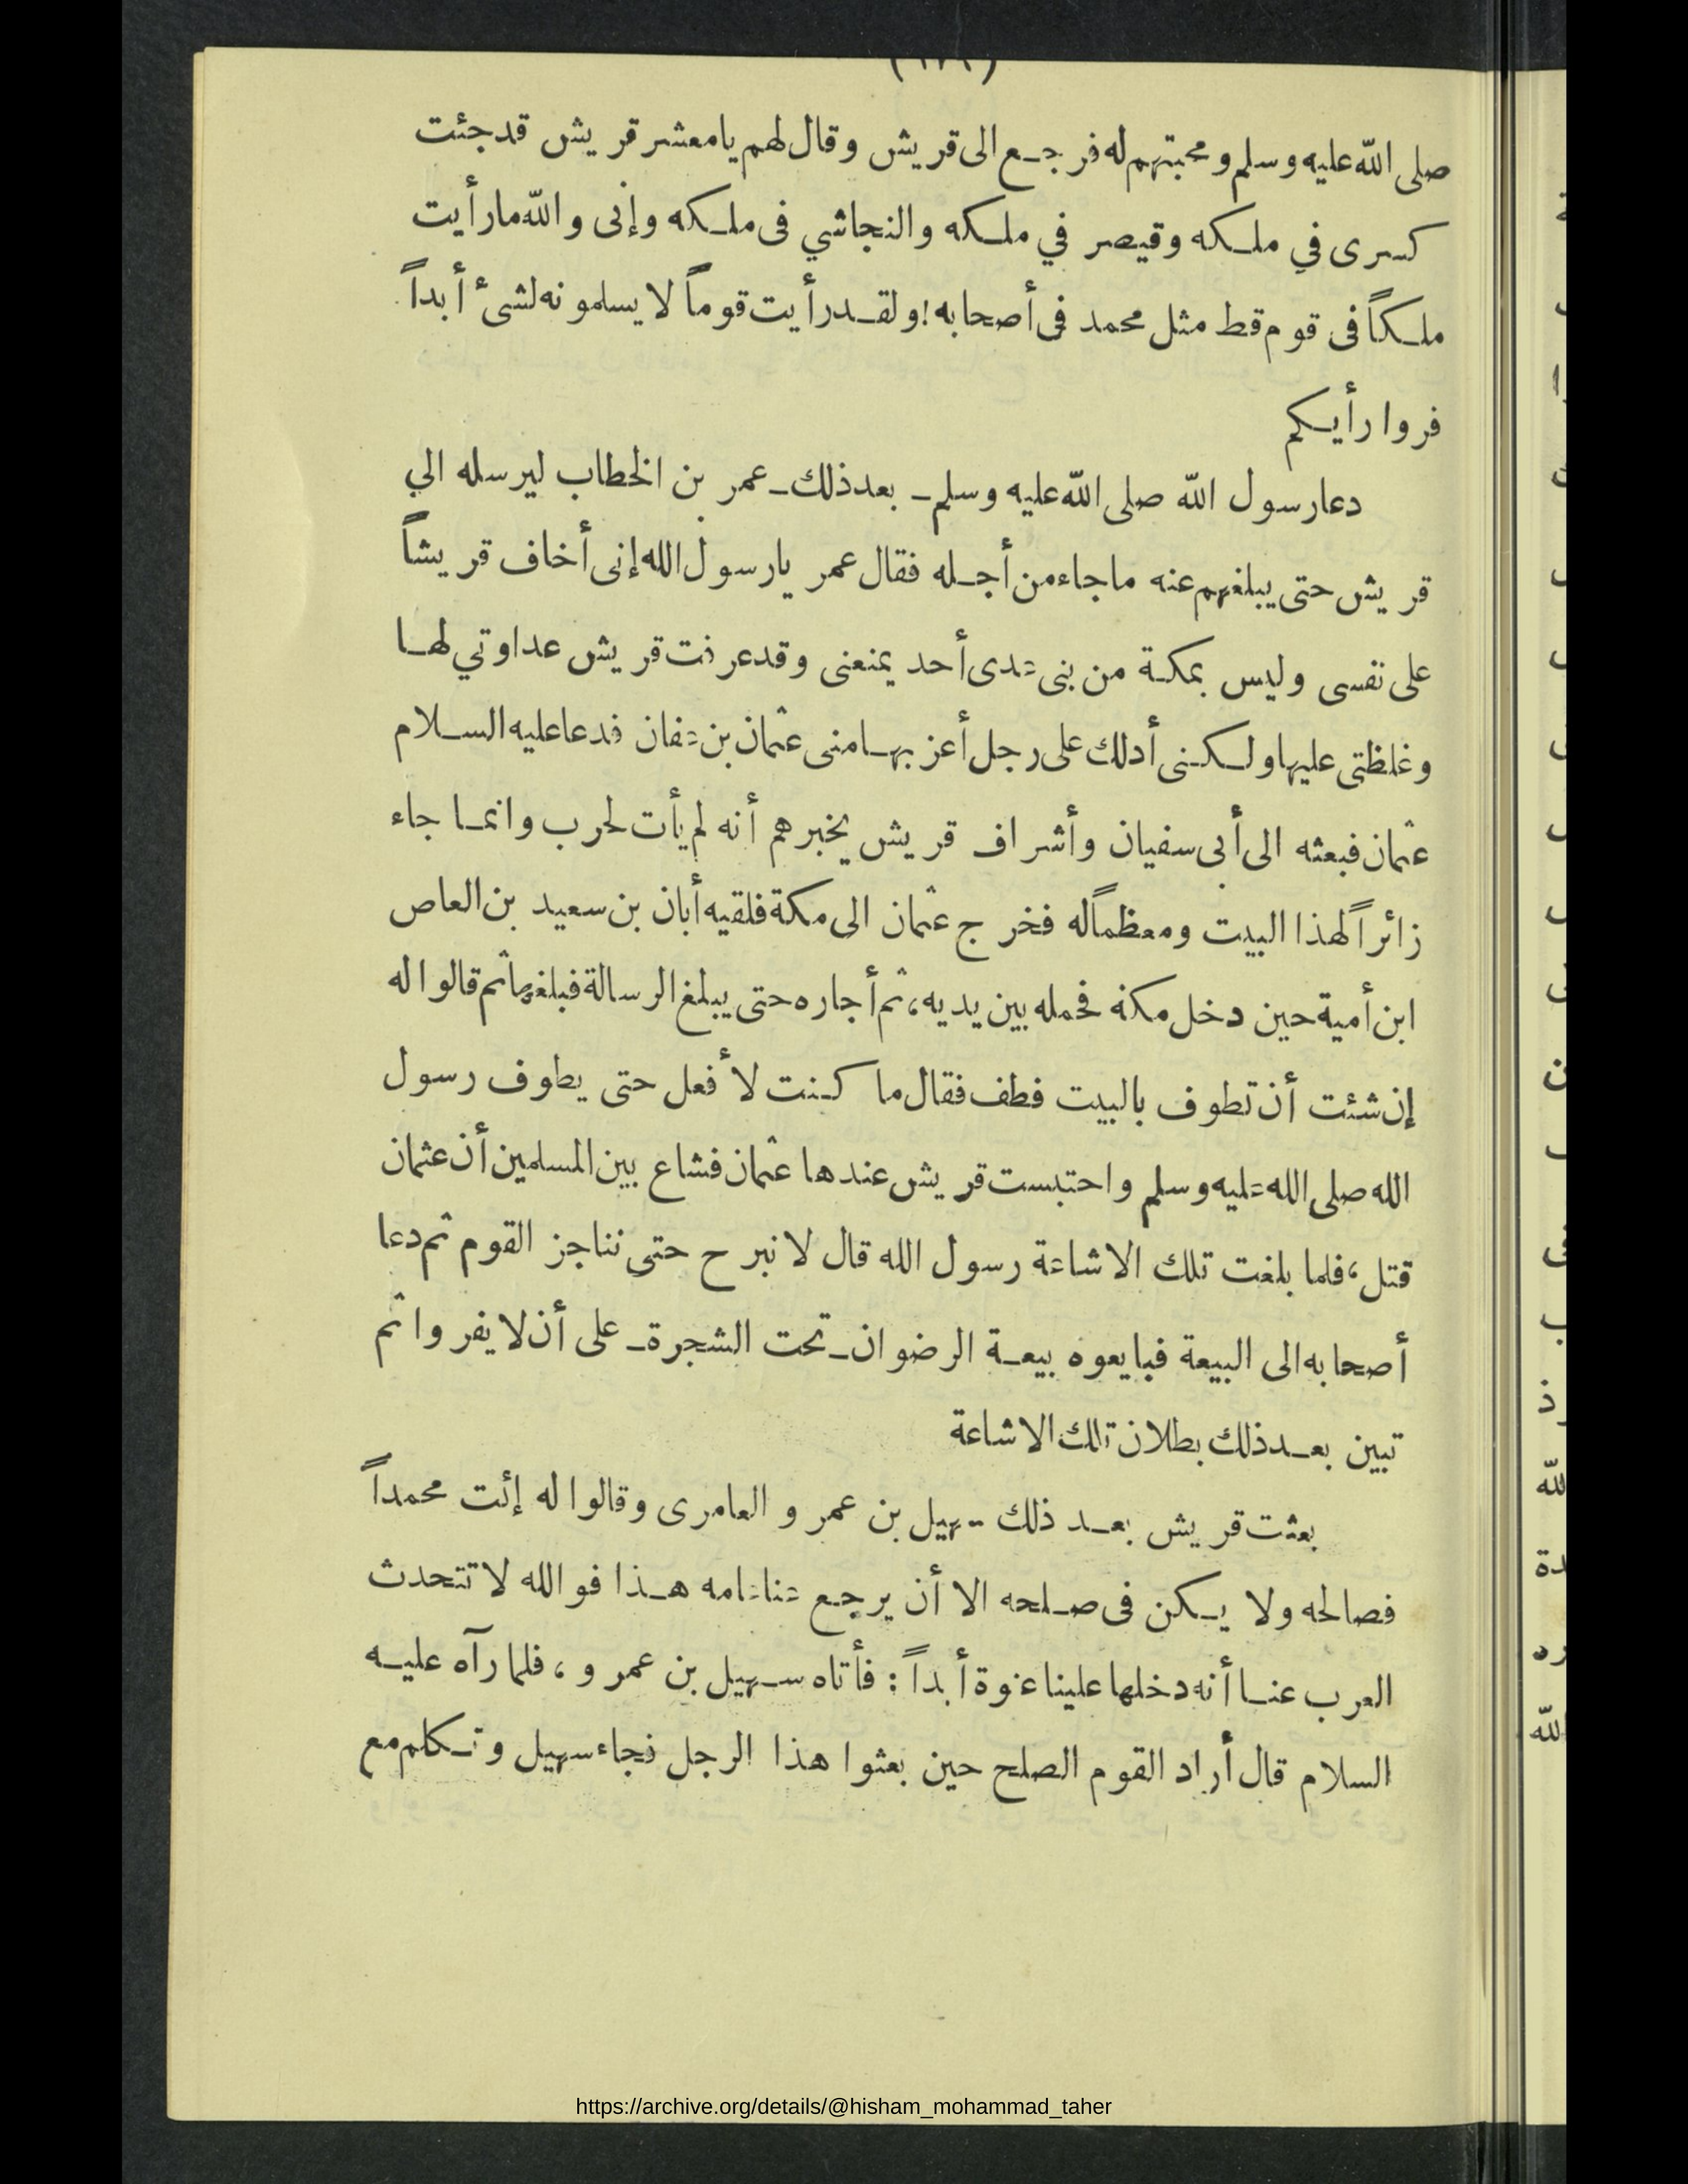 صلى الله عليه وسلم ومحبتهم له فرجع الى قريش وقال لهم يا معشر قريش قد جئت
كسرى في ملكه وقيصر في ملكه والنجاشي فى ملكه وإنى والله ما رأيت
ملكاً فى قوم قط مثل محمد فى أصحابه! ولقد رأيت قوماً لا يسلمونه لشىء أبداً
فروا رأيكم
دعا رسول الله صلى الله عليه وسلم ـ بعد ذلك ـ عمر بن الخطاب ليرسله الي
قريش حتى يبلغهم عنه ما جاء من أجله فقال عمر يا رسول الله إنى أخاف قريشاً
على نفسى وليس بمكة من بنى عدى أحد يمنعنى وقد عرفت قريش عداوتي لها
وغلظتى عليها ولكنى أدلك على رجل أعز بها منى عثمان بن عفان فدعا عليه السلام
عثمان فبعثه الى أبى سفيان وأشراف قريش يخبرهم أنه لم يأت لحرب وانما جاء
زائراً لهذا البيت ومعظماً له فخرج عثمان الى مكة فلقيه أبان بن سعيد بن العاص
ابن أمية حين دخل مكة فحمله بين يديه، ثم أجاره حتى يبلغ الرسالة فبلغها ثم قالوا له
إن شئت أن تطوف بالبيت فطف فقال ما كنت لأفعل حتى يطوف رسول
الله صلى الله عليه وسلم واحتبست قريش عندها عثمان فشاع بين المسلمين أن عثمان
قتل، فلما بلغت تلك الاشاعة رسول الله قال لا نبرح حتى نناجز القوم ثم دعا
أصحابه الى البيعة فبايعوه بيعة الرضوان ـ تحت الشجرة ـ على أن لا يفروا ثم
تبين بعد ذلك بطلان تلك الاشاعة
بعثت قريش بعد ذلك سهيل بن عمرو العامرى وقالوا له إئت محمداً
فصالحه ولا يكن فى صلحه الا أن يرجع عنا عامه هذا فوالله لا تتحدث
العرب عنا أنه دخلها علينا عنوة أبداً : فأتاه سهيل بن عمرو، فلما رآه عليه
السلام قال أراد القوم الصلح حين بعثوا هذا الرجل فجاء سهيل وتكلم مع
https://archive.org/details/@hisham_mohammad_taher